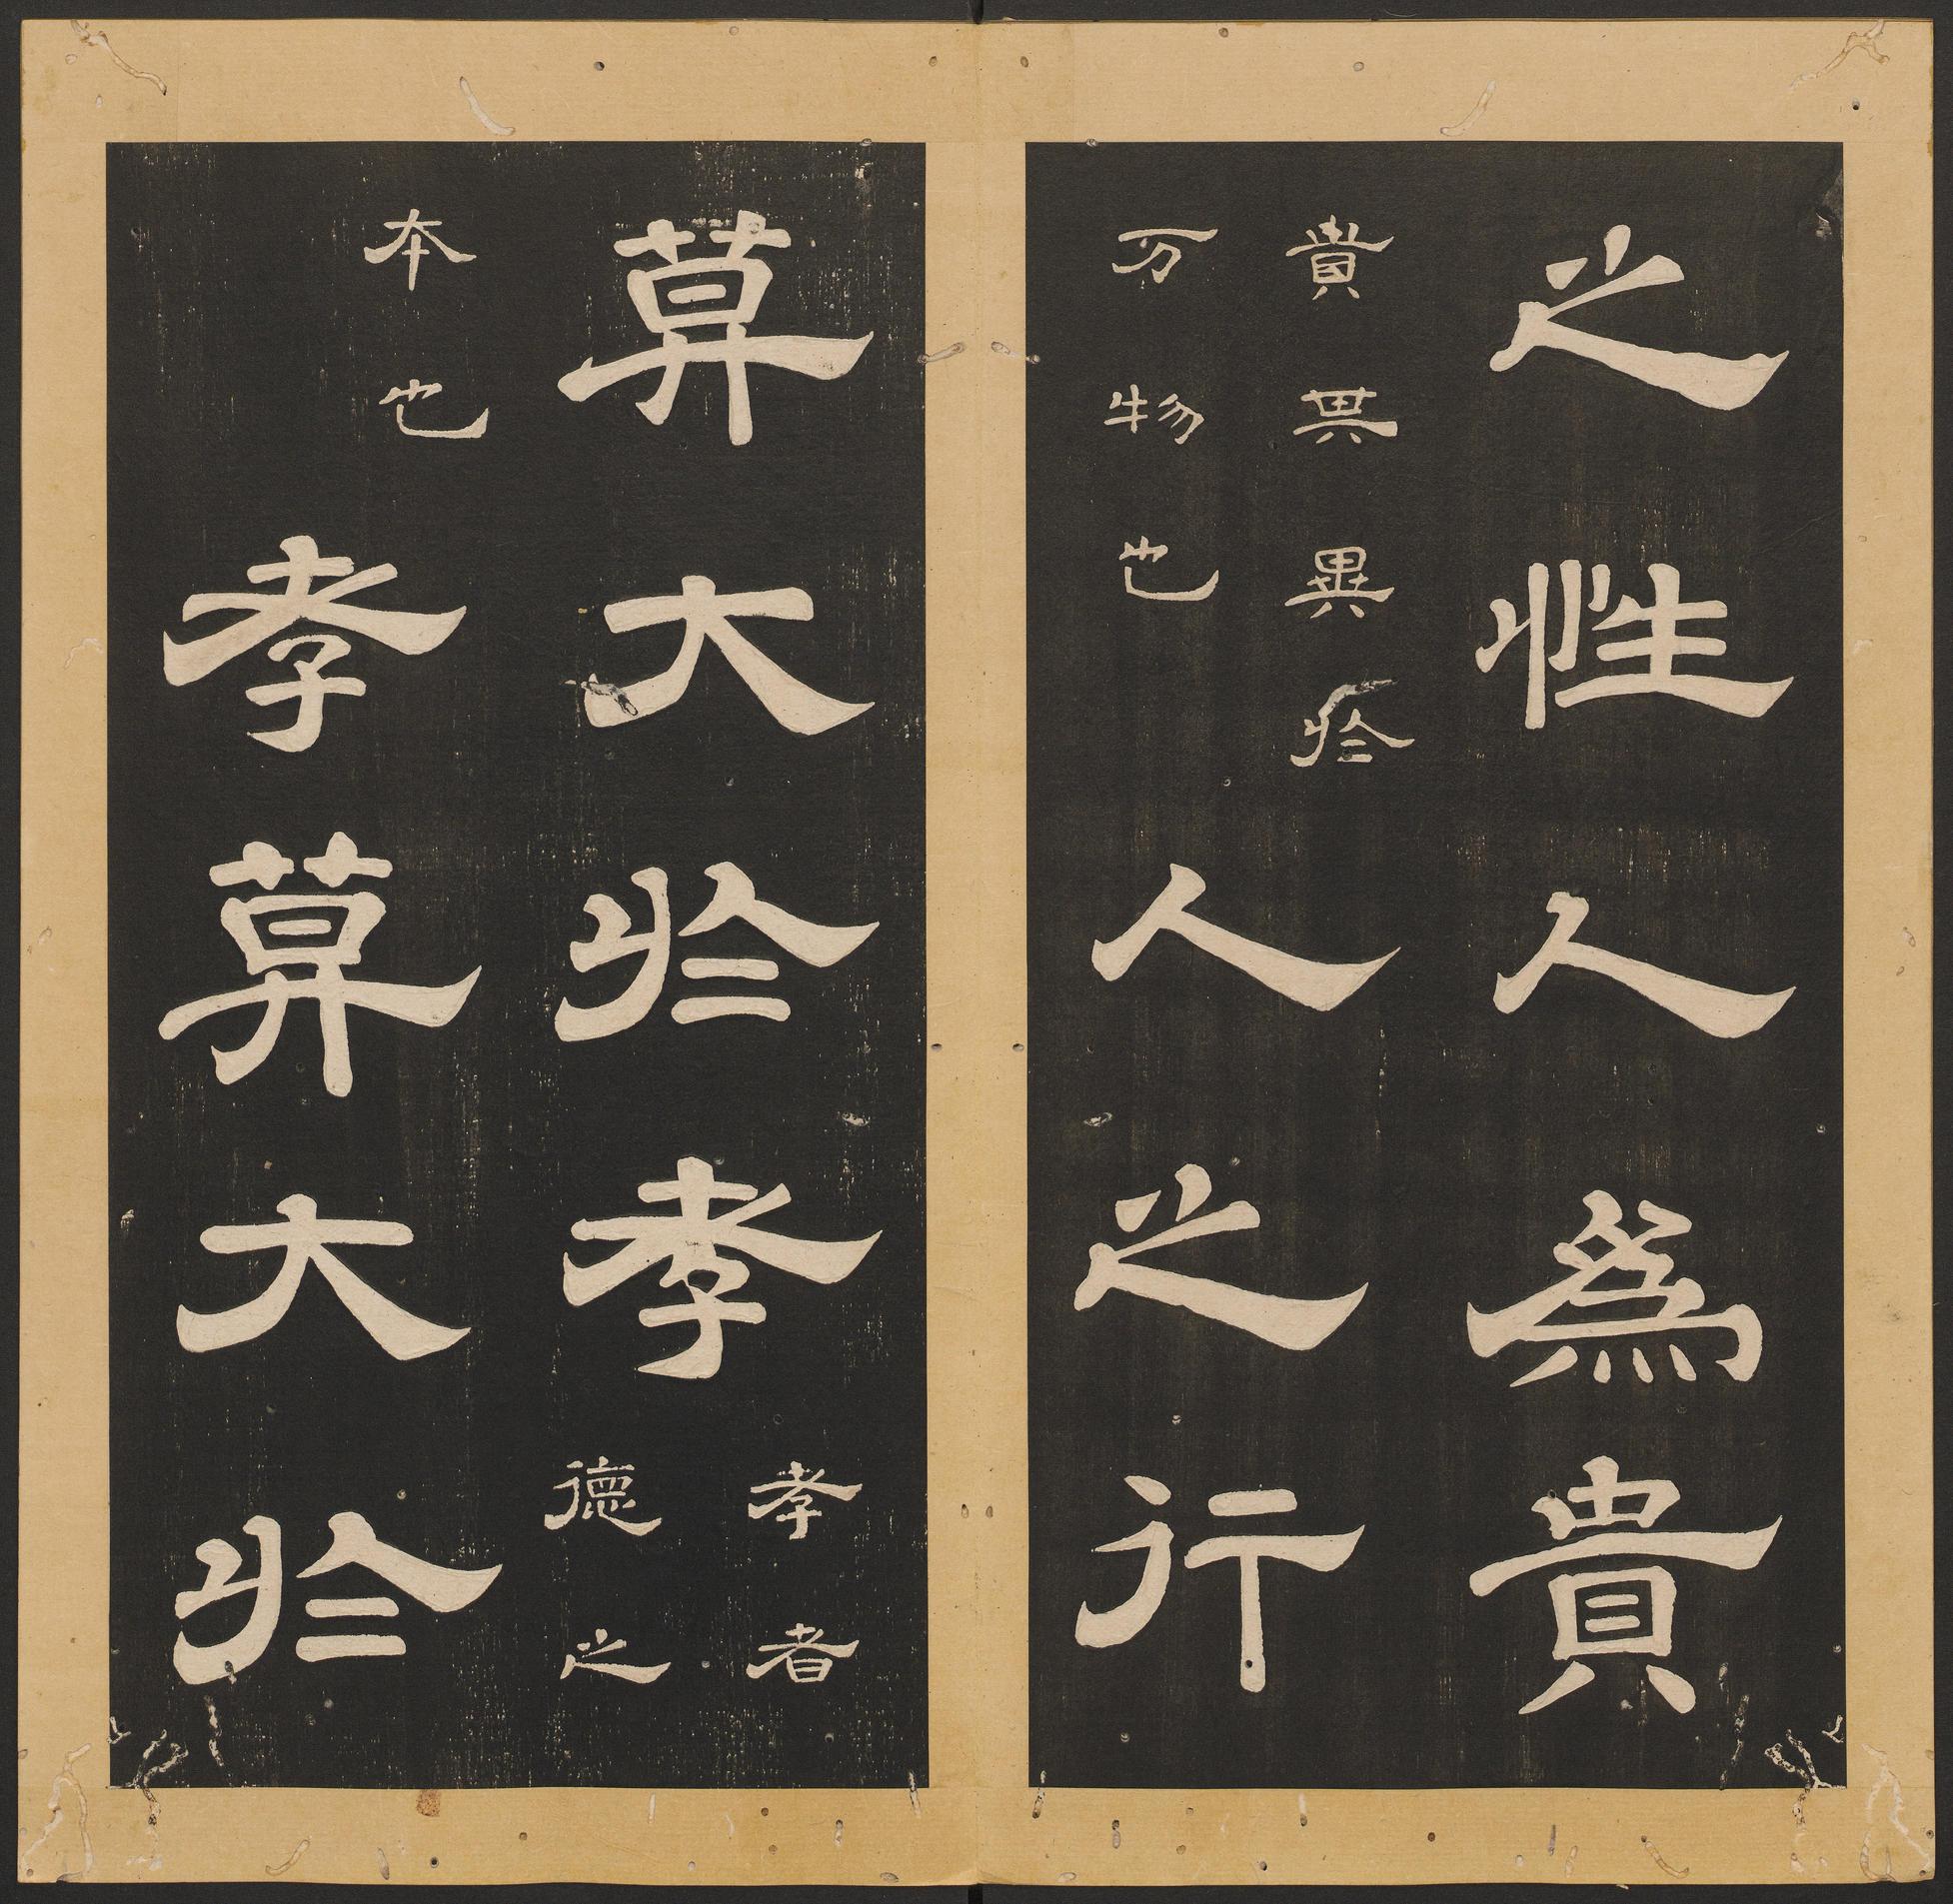 之性人為貴
貴其異於
万物也
人之行
莫大於孝
孝者
德之
本也
孝莫大於